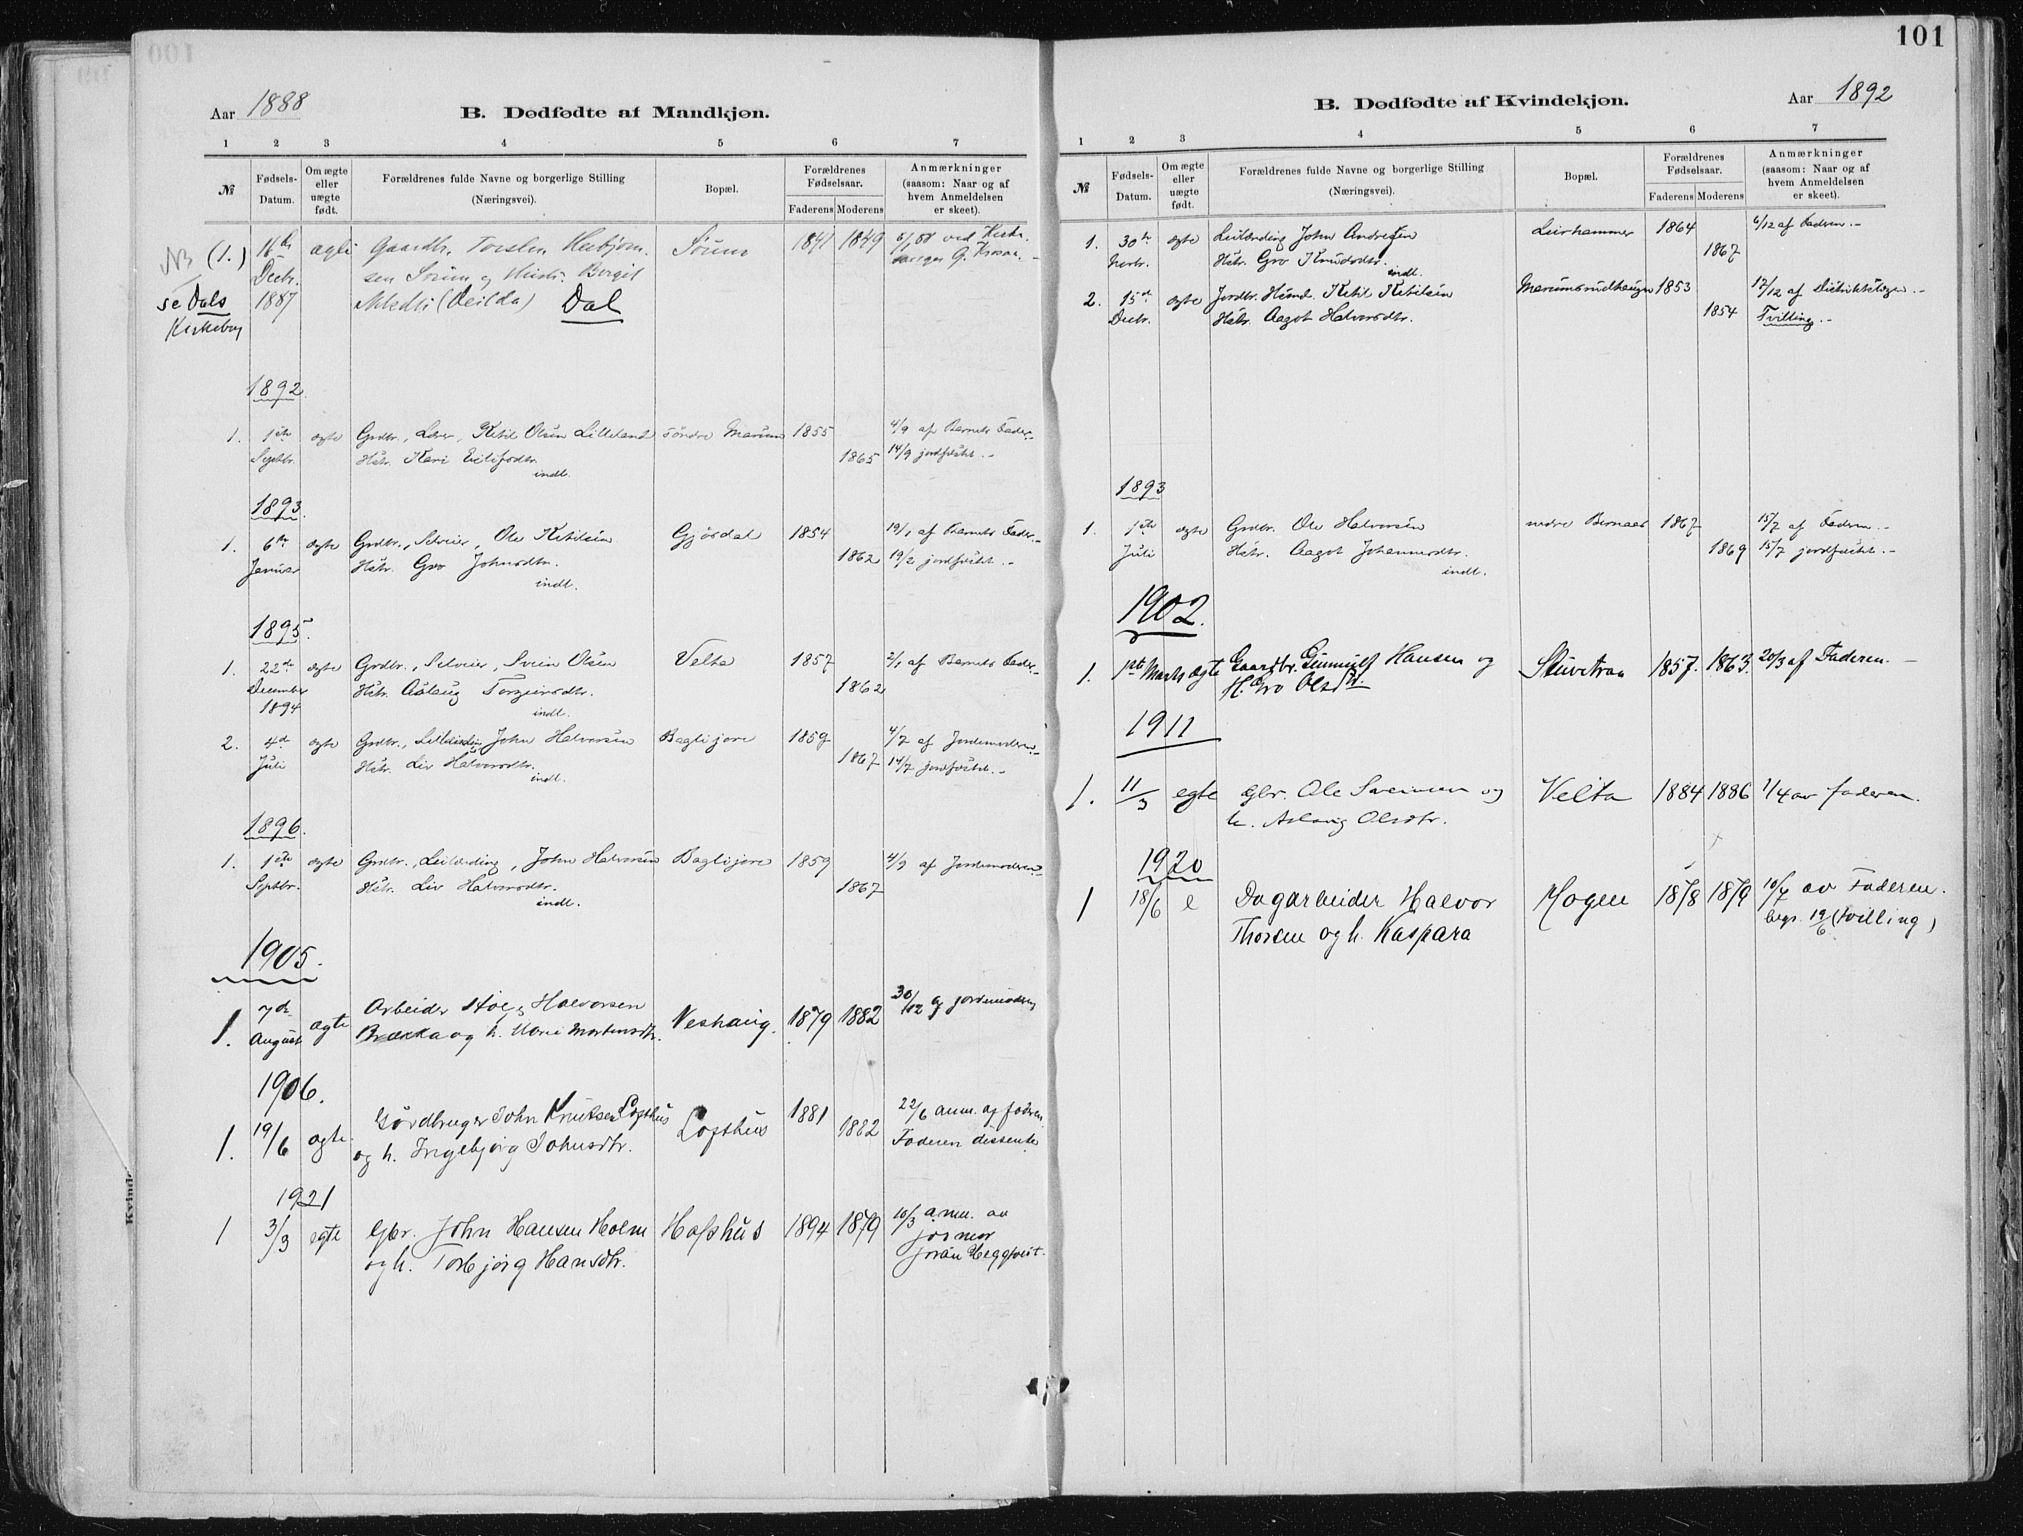 101
Aar 1888
B. Dødfødte af Mandkjøn.
1 2 3 4 5 6 7
№
Fødsels-Datum.
Om ægte eller uægte født.
Forældrenes fulde Navne og borgerlige Stilling (Næringsvei).
Bopæl.
Forældrenes Fødselsaar.
Faderens Moderens
Anmærkninger (saasom: Naar og af hvem Anmeldelsen er skeet).
NB (1.) 16de ægte Gaardbr. Torsten Herbjørn- Sørum 1841 1849 6/1 88 ved Kirke-
Decbr. sen Sørum og Hustr. Bergit sanger G.
se Dals 1887 (Reilda) Dal
Kirkebog
1892
1. 1ste ægte Grdbr., Lærer, Ketil Olsen Lilleland Søndre Mærum 1855 4/9 af Barnets Fader.-
Septbr. Hstr. Kari Eilifsdtr. 1865 14/9 jordfæstet.-
indl.
1893.
1. 6te ægte Grdbr., Selveier, Ole Ketilsen Gjøsdal 1854 19/1 af Barnets Fader.-
Januar Hstr. Gro Johnsdtr. 1862 19/2 jordfæstet.-
indl.
1895.
1. 22de ægte Grdbr., Selveier, Svein Olsen Velta 1857 2/1 af Barnets Fader.-
December Hstr. Aslaug Torgeirsdtr. 1862
1894 indl.
2. 4de ægte Grdbr., Leilænding John Halvorsen Baglijore 1859 4/7 af Jordemoderen.-
Juli Hstr. Liv Halvorsdtr. 1867 14/7 jordfæstet.-
indl.
1896.
1. 1ste ægte Grdbr., Leilænding, John Halvorsen Baglijore 1859 4/9 af Jordemoderen.-
Septbr. Hstr. Liv Halvorsdtr. 1867
indl.
1905.
1. 7de ægte Arbeider Halvorsen Neshaug. 1879 1882 30/12 af jordemoderen
August Brække og h. Marie Mortensdtr.
1906.
1. 19/6 ægte. Gårdbruger John Knutsen Lofthus Lofthus 1881 22/6 anm. af faderen
og h. Ingebjørg Johnsdtr. 1882 Faderen dissenter
1921
1 3/3 egte Gbr. John Hansen Holm Hafshus 1894 1879 10/3 anm. av
og h. Torbjørg Hansdtr. jormor
Heggtveit.
B. Dødfødte af Kvindekjøn.
Aar 1892
1 2 3 4 5 6 7
№
Fødsels-Datum.
Om ægte eller uægte født.
Forældrenes fulde Navne og borgerlige Stilling (Næringsvei).
Bopæl.
Forældrenes Fødselsaar.
Faderens Moderens
Anmærkninger (saasom: Naar og af hvem Anmeldelsen er skeet).
1. 30te ægte Leilænding John Andresen Leirhammer 1864 6/12 af Faderen.-
Novbr. Hstr. Gro Knudsdtr. 1867
indl.
2. 15de ægte Jordbr. Husmd. Ketil Ketilsen Mærumsrudhaugen 1853 17/12 af Distriktslægen.-
Decbr. Hstr. Aagot Halvorsdtr. 1854 Tvilling.-
1893
1. 1ste ægte Grdbr. Ole Halvorsen nedre Bernaas 1867 15/7 af Faderen.-
Juli Hstr. Aagot Johannesdtr. 1869 15/7 jordfæstet.-
indl.
1902.
1. 1ste Marts ægte Gaardbr. Gunnulf Hansen og Stuvetraa 1857. 1863. 20/3 af Faderen.-
H. Gro Olsdtr.
1911
1. 11/3 egte gbr. Ole Sveinsen og Velta 1884 1886 1/4 av faderen.
h. Aslaug Olsdtr.
1920
1 18/6 e Dagarbeider Halvor Mogen 1878 1879 10/7 av Faderen.
Thorsen og h. Kaspara begr. 19/6 (tvilling)